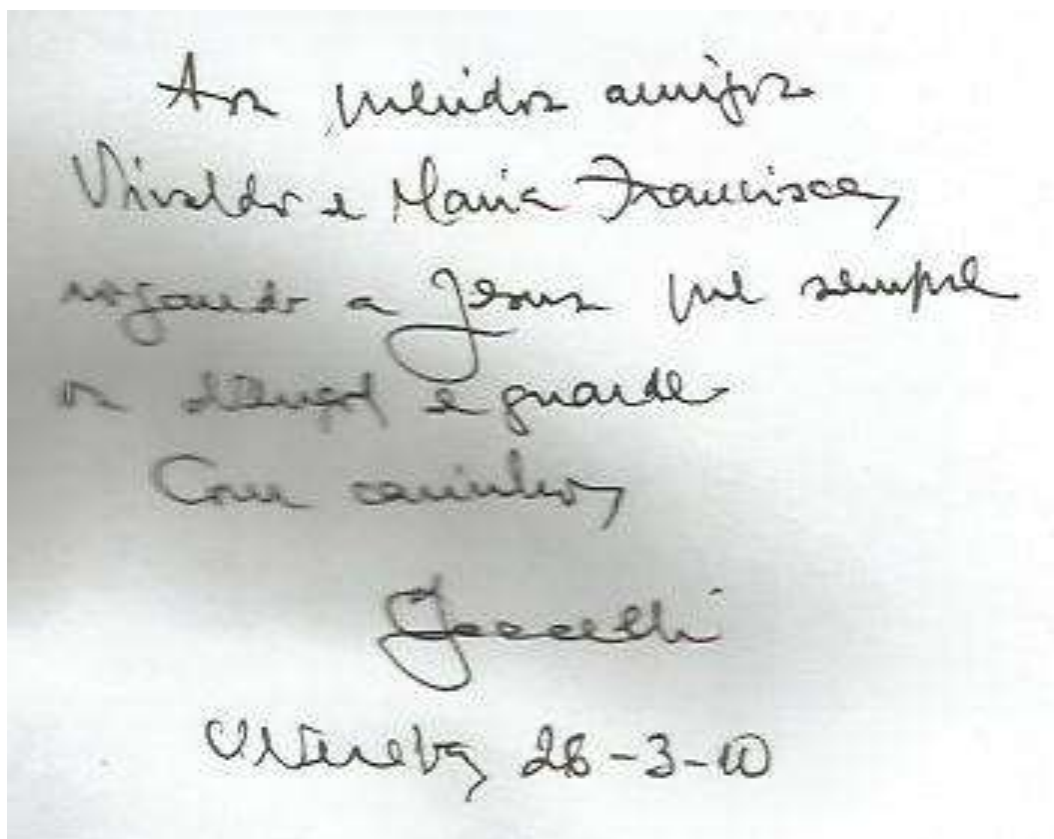 Aos queridos amigos
Vivaldo e Maria Francisca,
rogando a Jesus que sempre
os abençoe e guarde
Com carinho,
Uberaba, 28-3-10